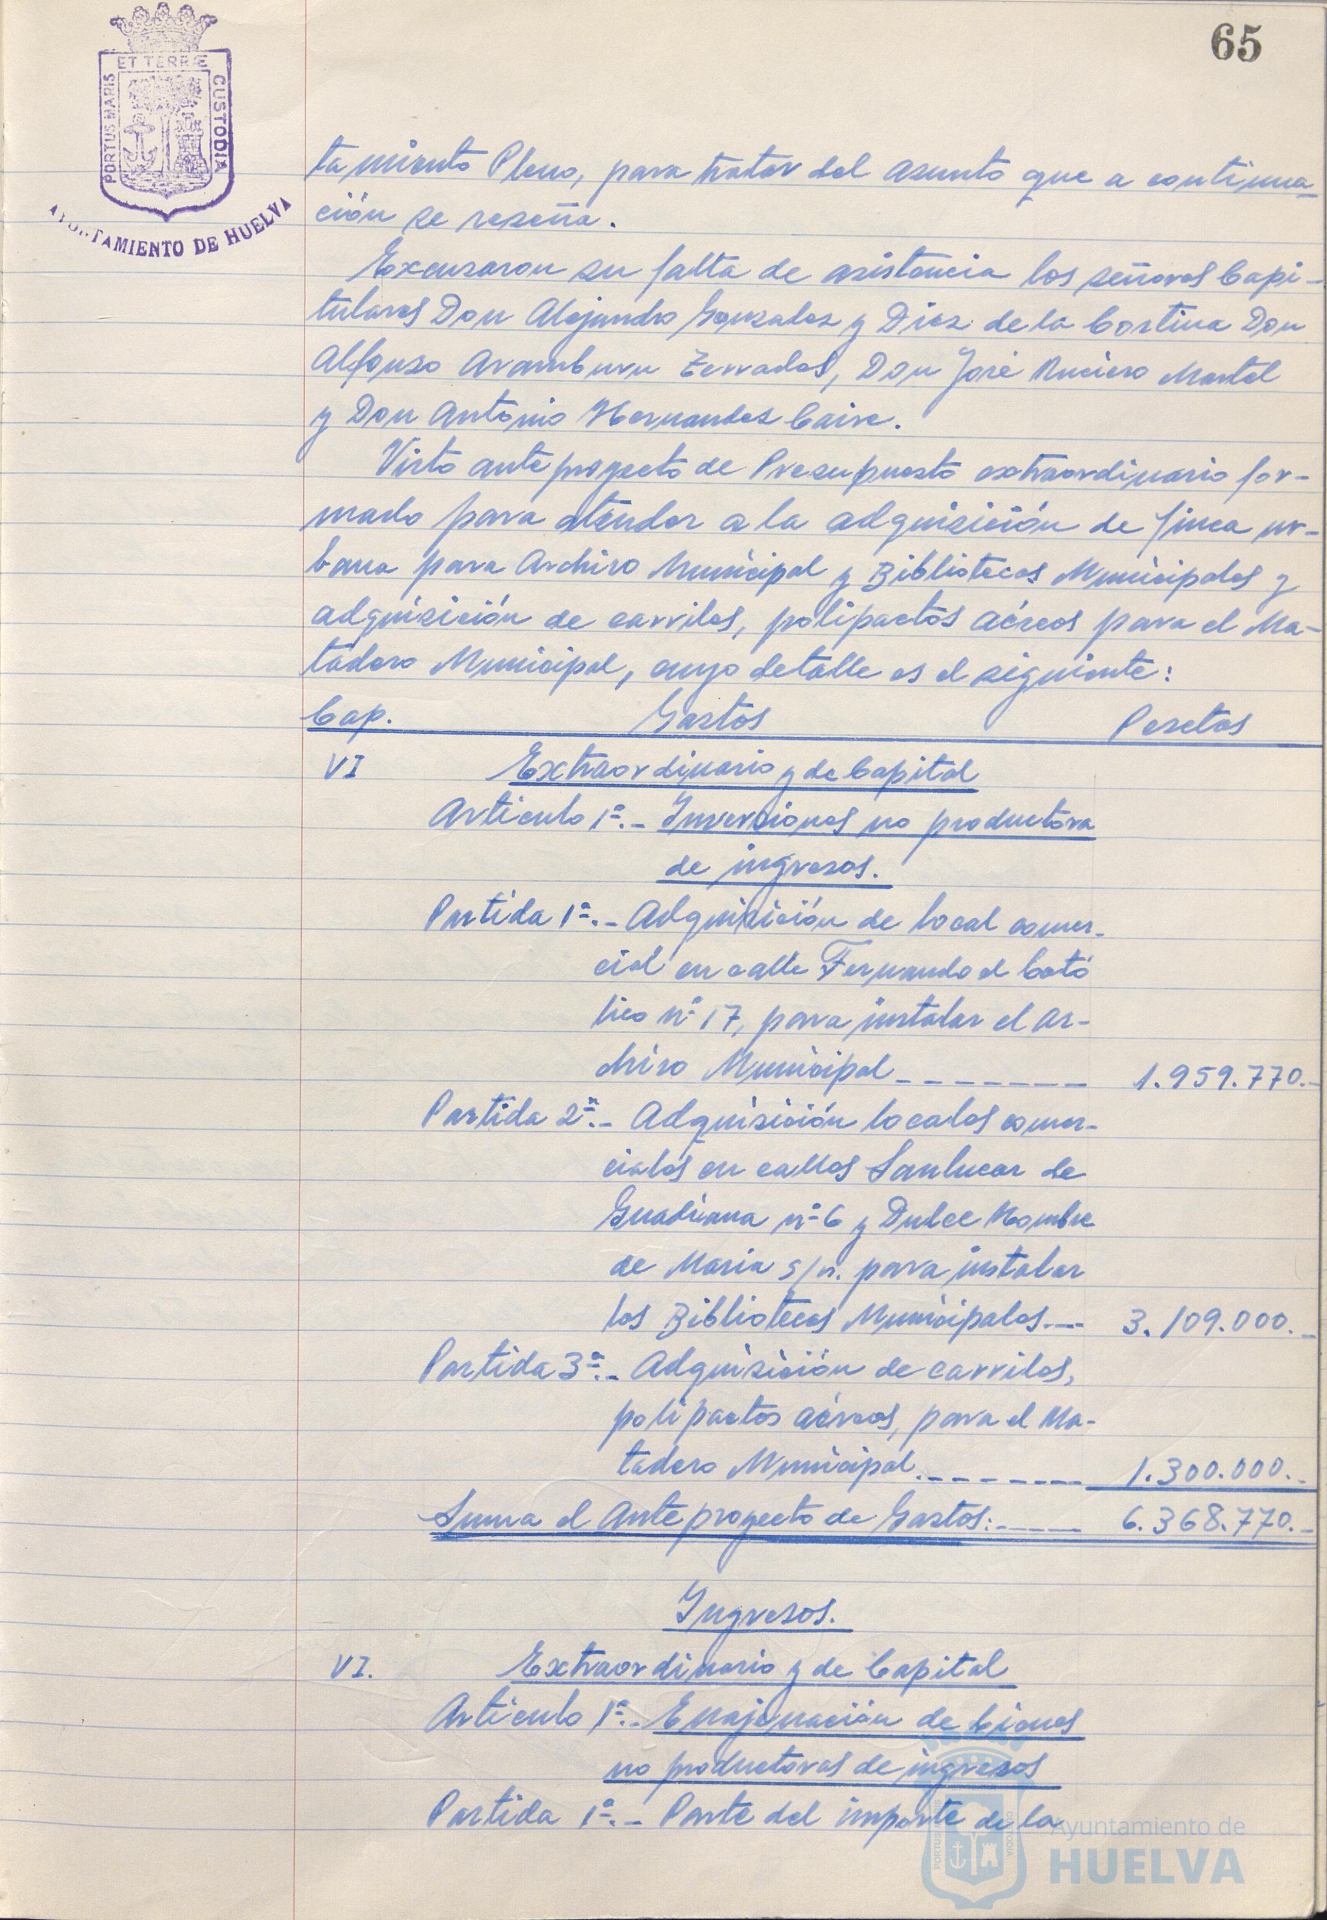 65
ET TERRÆ
PORTUS MARIS
CUSTODIA
AYUNTAMIENTO DE HUELVA
tamiento Pleno, para tratar del asunto que a continua-
ción se reseña.
Excusaron su falta de asistencia los señores Capi-
tulares Don Alejandro Gonzalez y Diez de la Cortina Don
Alfonso Aramburu Terrades, Don José Ruciero Martel
y Don Antonio Hernandez Caire.
Visto anteproyecto de Presupuesto extraordinario for-
mado para atender a la adquisición de finca ur-
bana para Archivo Municipal y Bibliotecas Municipales y
adquisición de carriles, polipactos aéreos para el Ma-
tadero Municipal, cuyo detalle es el siguiente:
Cap. Gastos Pesetas
VI Extraordinario y de Capital
Articulo 1º.- Inversiones no productora
de ingresos.
Partida 1ª.- Adquisición de local comer-
cial en calle Fernando el Cató
lico nº 17, para instalar el Ar-
chivo Municipal ------- 1.959.770.-
Partida 2ª.- Adquisición locales comer-
ciales en calles Sanlucar de
Guadiana nº 6 y Dulce Nombre
de Maria s/n. para instalar
las Bibliotecas Municipales.-- 3.109.000.-
Partida 3ª.- Adquisición de carriles,
polipactos aéreos, para el Ma-
tadero Municipal.------- 1.300.000.-
Suma el Anteproyecto de Gastos:----- 6.368.770.-
Ingresos.
VI. Extraordinario y de Capital
Articulo 1º.- Enajenación de bienes
no productoras de ingresos
Partida 1ª.- Parte del importe de la
Ayuntamiento de
HUELVA